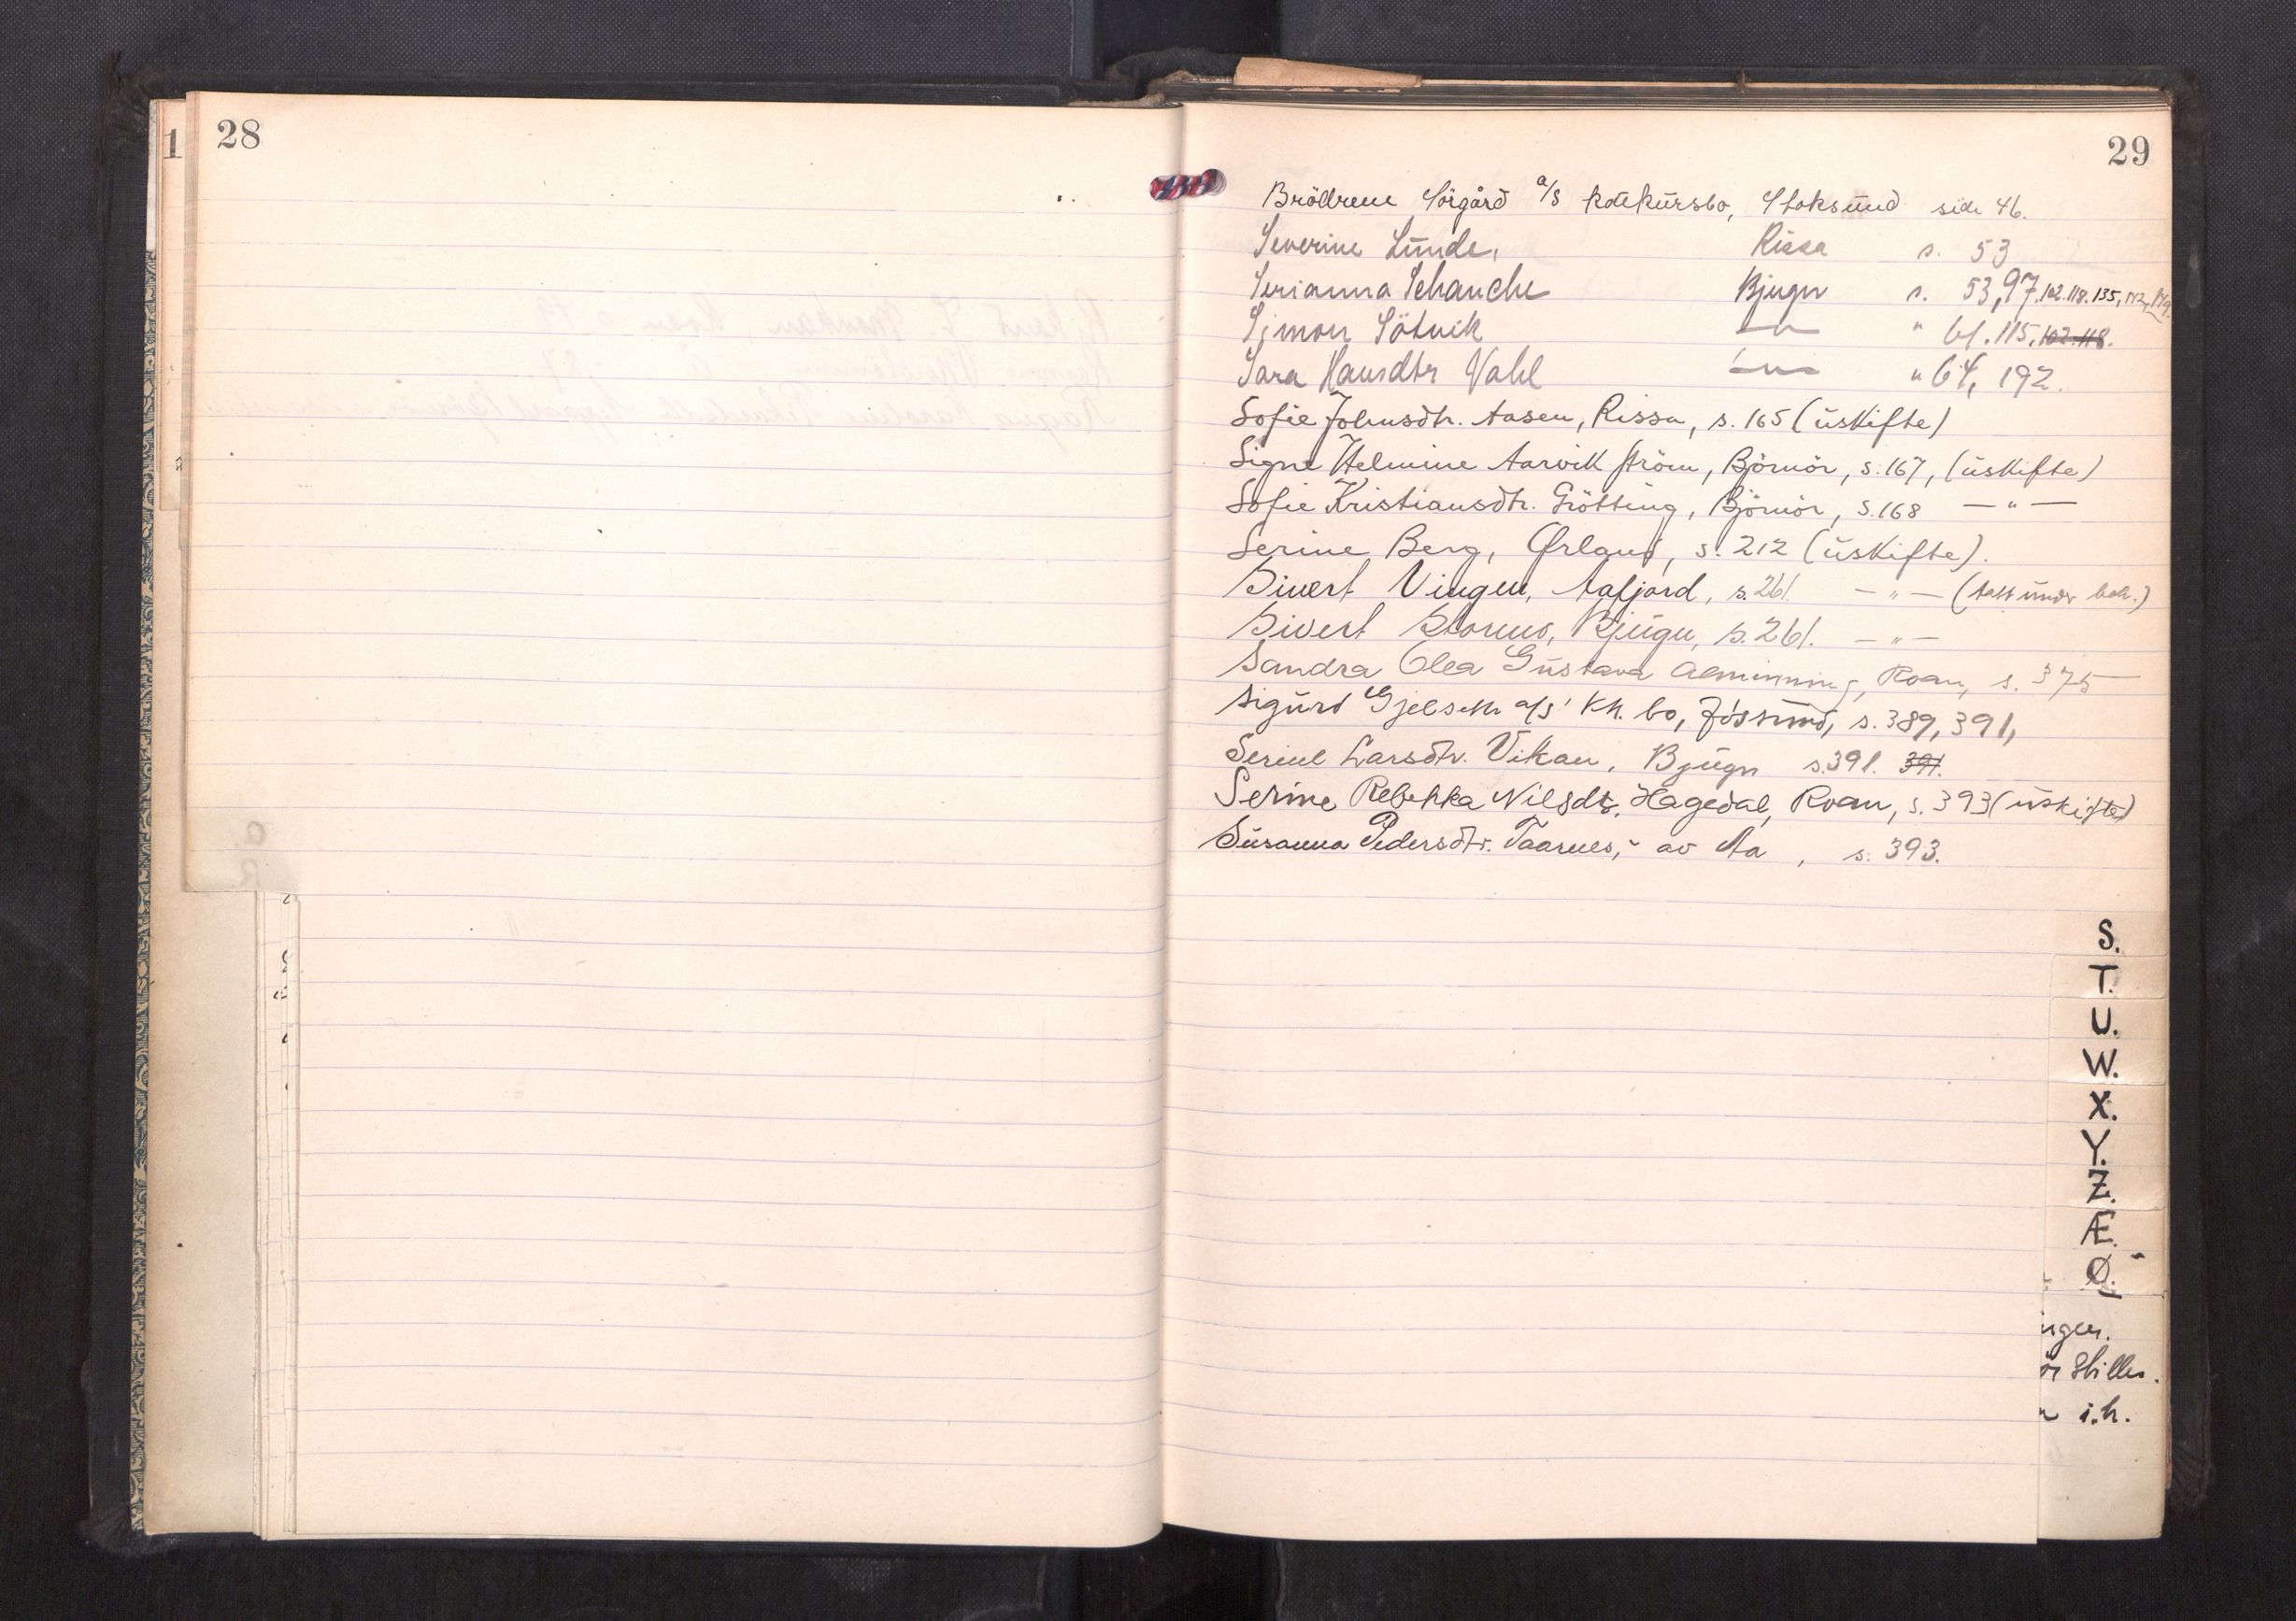 1
28
29
Brödrene Sörgård a/s konkursbo, Stoksund side 46.
Severine Lunde, Rissa s. 53
Serianna Schanche Bjugn s. 53, 97, 102. 118. 135, 172,
Simon Sötvik —"— " 61. 115. 102. 118.
Sara Hansdtr Vahl —"— " 64, 192.
Sofie Johnsdtr. Aasen, Rissa, s. 165 (uskifte)
Signe Helmine Aarvik Ström, Björnör, s. 167, (uskifte)
Sofie Kristiansdtr. Grötting, Björnör, s. 168 —"—
Serine Berg, Ørland, s. 212 (uskifte).
Sivert Vingen, Aafjord, s. 261. —"— (
Sivert Stormo, Bjugn, s. 261. —"—
Sandra Olea Gustava Alminning, Roan, s. 375
Sigurd Gjelseth a/s' kk. bo, Jössund, s. 389, 391,
Serine Larsdtr. Vikan, Bjugn s. 391. 391.
Serine Rebekka Nilsdtr. Hagedal, Roan, s. 393 (uskifte)
Susanna Pedersdtr. Taarnes, av Aa, s. 393.
S.
T.
U.
W.
X.
Y.
Z.
Æ.
Ø.
ngen.
ör Stiller.
i.h.